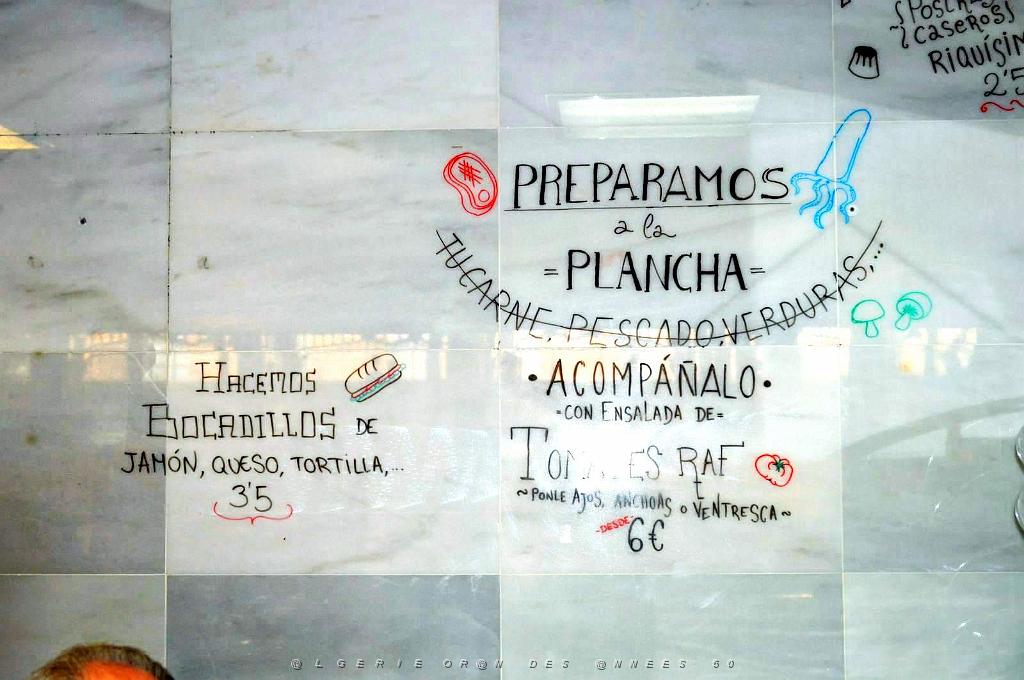 POSTRES
CASEROS
RIQUÍSIM
2'5
PREPARAMOS
a la
=PLANCHA=
TU CARNE, PESCADO, VERDURAS,...
HACEMOS
BOCADILLOS DE
JAMÓN, QUESO, TORTILLA,...
3'5
• ACOMPÁÑALO •
=CON ENSALADA DE=
TOMATES RAF
~PONLE AJOS, ANCHOAS O VENTRESCA~
-DESDE-
6€
@LGERIE OR@N DES @NNEES 50